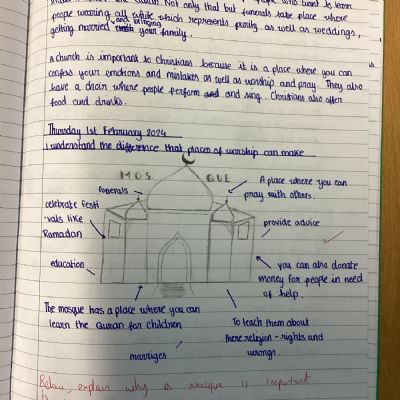 Not only that but funerals take place where
people wearing all white which represents purity as well as weddings,
getting married and bringing your family.
A church is important to Christians because it is a place where you can
confess your emotions and mistakes as well as worship and pray. They also
have a choir where people perform and sing. Christians also offer
food and drinks.
Thursday 1st February 2024
I understand the difference that places of worship can make
MOSQUE
funerals
A place where you can
pray with others.
celebrate festi
-vals like
Ramadan
provide advice
education
you can also donate
money for people in need
of help.
The mosque has a place where you can
learn the Quran for children
To teach them about
there religion - rights and
wrongs.
marriges
Below, explain why a mosque is important